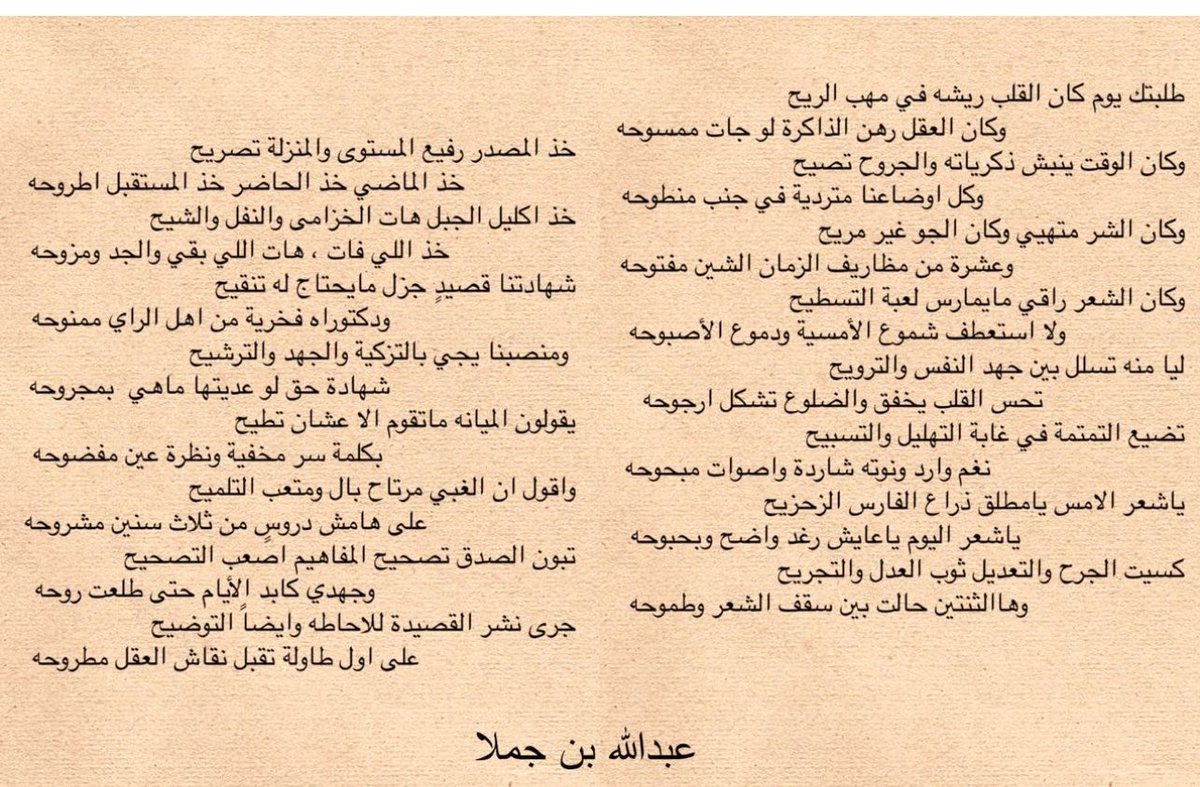 طلبتك يوم كان القلب ريشه في مهب الريح
وكان العقل رهن الذاكرة لو جات ممسوحه
وكان الوقت ينبش ذكرياته والجروح تصيح
وكل اوضاعنا متردية في جنب منطوحه
وكان الشر متهيي وكان الجو غير مريح
وعشرة من مظاريف الزمان الشين مفتوحه
وكان الشعر راقي مايمارس لعبة التسطيح
ولا استعطف شموع الأمسية ودموع الأصبوحه
ليا منه تسلل بين جهد النفس والترويح
تحس القلب يخفق والضلوع تشكل ارجوحه
تضيع التمتمة في غابة التهليل والتسبيح
نغم وارد ونوته شاردة واصوات مبحوحه
ياشعر الامس يامطلق ذراع الفارس الزحزيح
ياشعر اليوم ياعايش رغد واضح وبحبوحه
كسيت الجرح والتعديل ثوب العدل والتجريح
وهاالثنتين حالت بين سقف الشعر وطموحه
خذ المصدر رفيع المستوى والمنزلة تصريح
خذ الماضي خذ الحاضر خذ المستقبل اطروحه
خذ اكليل الجبل هات الخزامى والنفل والشيح
خذ اللي فات ، هات اللي بقي والجد ومزوحه
شهادتنا قصيدٍ جزل مايحتاج له تنقيح
ودكتوراه فخرية من اهل الراي ممنوحه
ومنصبنا يجي بالتزكية والجهد والترشيح
شهادة حق لو عديتها ماهي بمجروحه
يقولون الميانه ماتقوم الا عشان تطيح
بكلمة سر مخفية ونظرة عين مفضوحه
واقول ان الغبي مرتاح بال ومتعب التلميح
على هامش دروسٍ من ثلاث سنين مشروحه
تبون الصدق تصحيح المفاهيم اصعب التصحيح
وجهدي كابد الأيام حتى طلعت روحه
جرى نشر القصيدة للاحاطه وايضاً التوضيح
على اول طاولة تقبل نقاش العقل مطروحه
عبدالله بن جملا